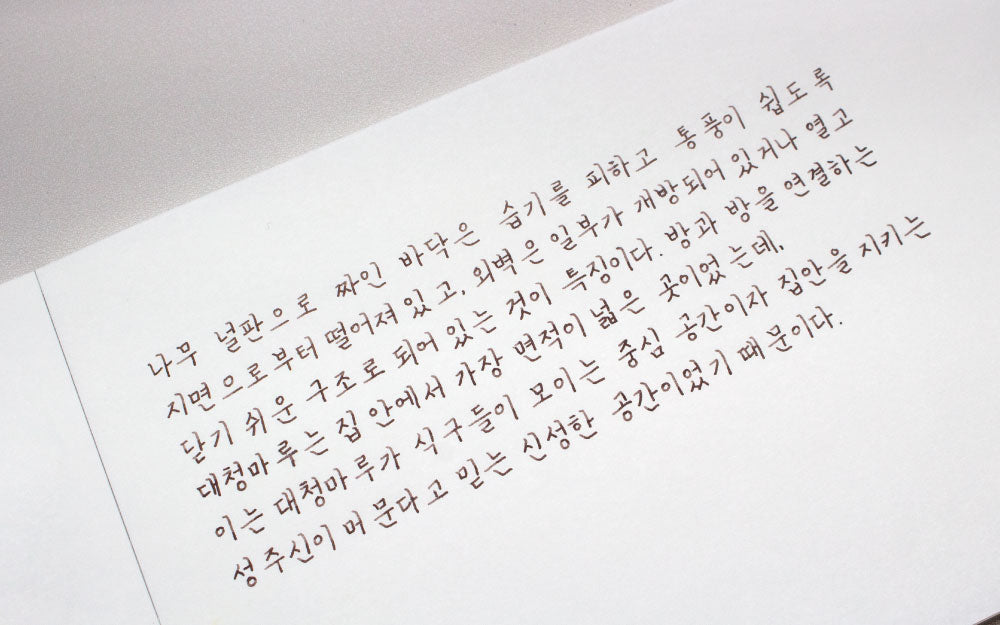 나무 널판으로 짜인 바닥은 습기를 피하고 통풍이 쉽도록
지면으로부터 떨어져 있고, 외벽은 일부가 개방되어 있거나 열고
닫기 쉬운 구조로 되어 있는 것이 특징이다. 방과 방을 연결하는
대청마루는 집 안에서 가장 면적이 넓은 곳이었는데,
이는 대청마루가 식구들이 모이는 중심 공간이자 집안을 지키는
성주신이 머문다고 믿는 신성한 공간이었기 때문이다.